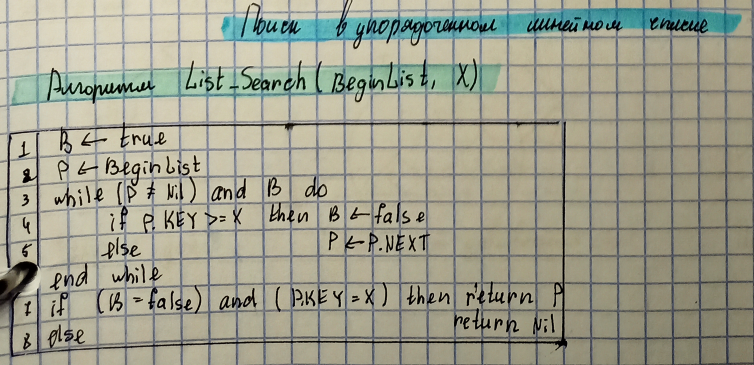 Поиск в упорядоченном линейном списке
Алгоритм List_Search(BeginList, X)
1 B ← true
2 P ← BeginList
3 while (P ≠ Nil) and B do
4 if P.KEY >= X then B ← false
5 else P ← P.NEXT
end while
7 if (B = false) and (P.KEY = X) then return P
8 else return Nil